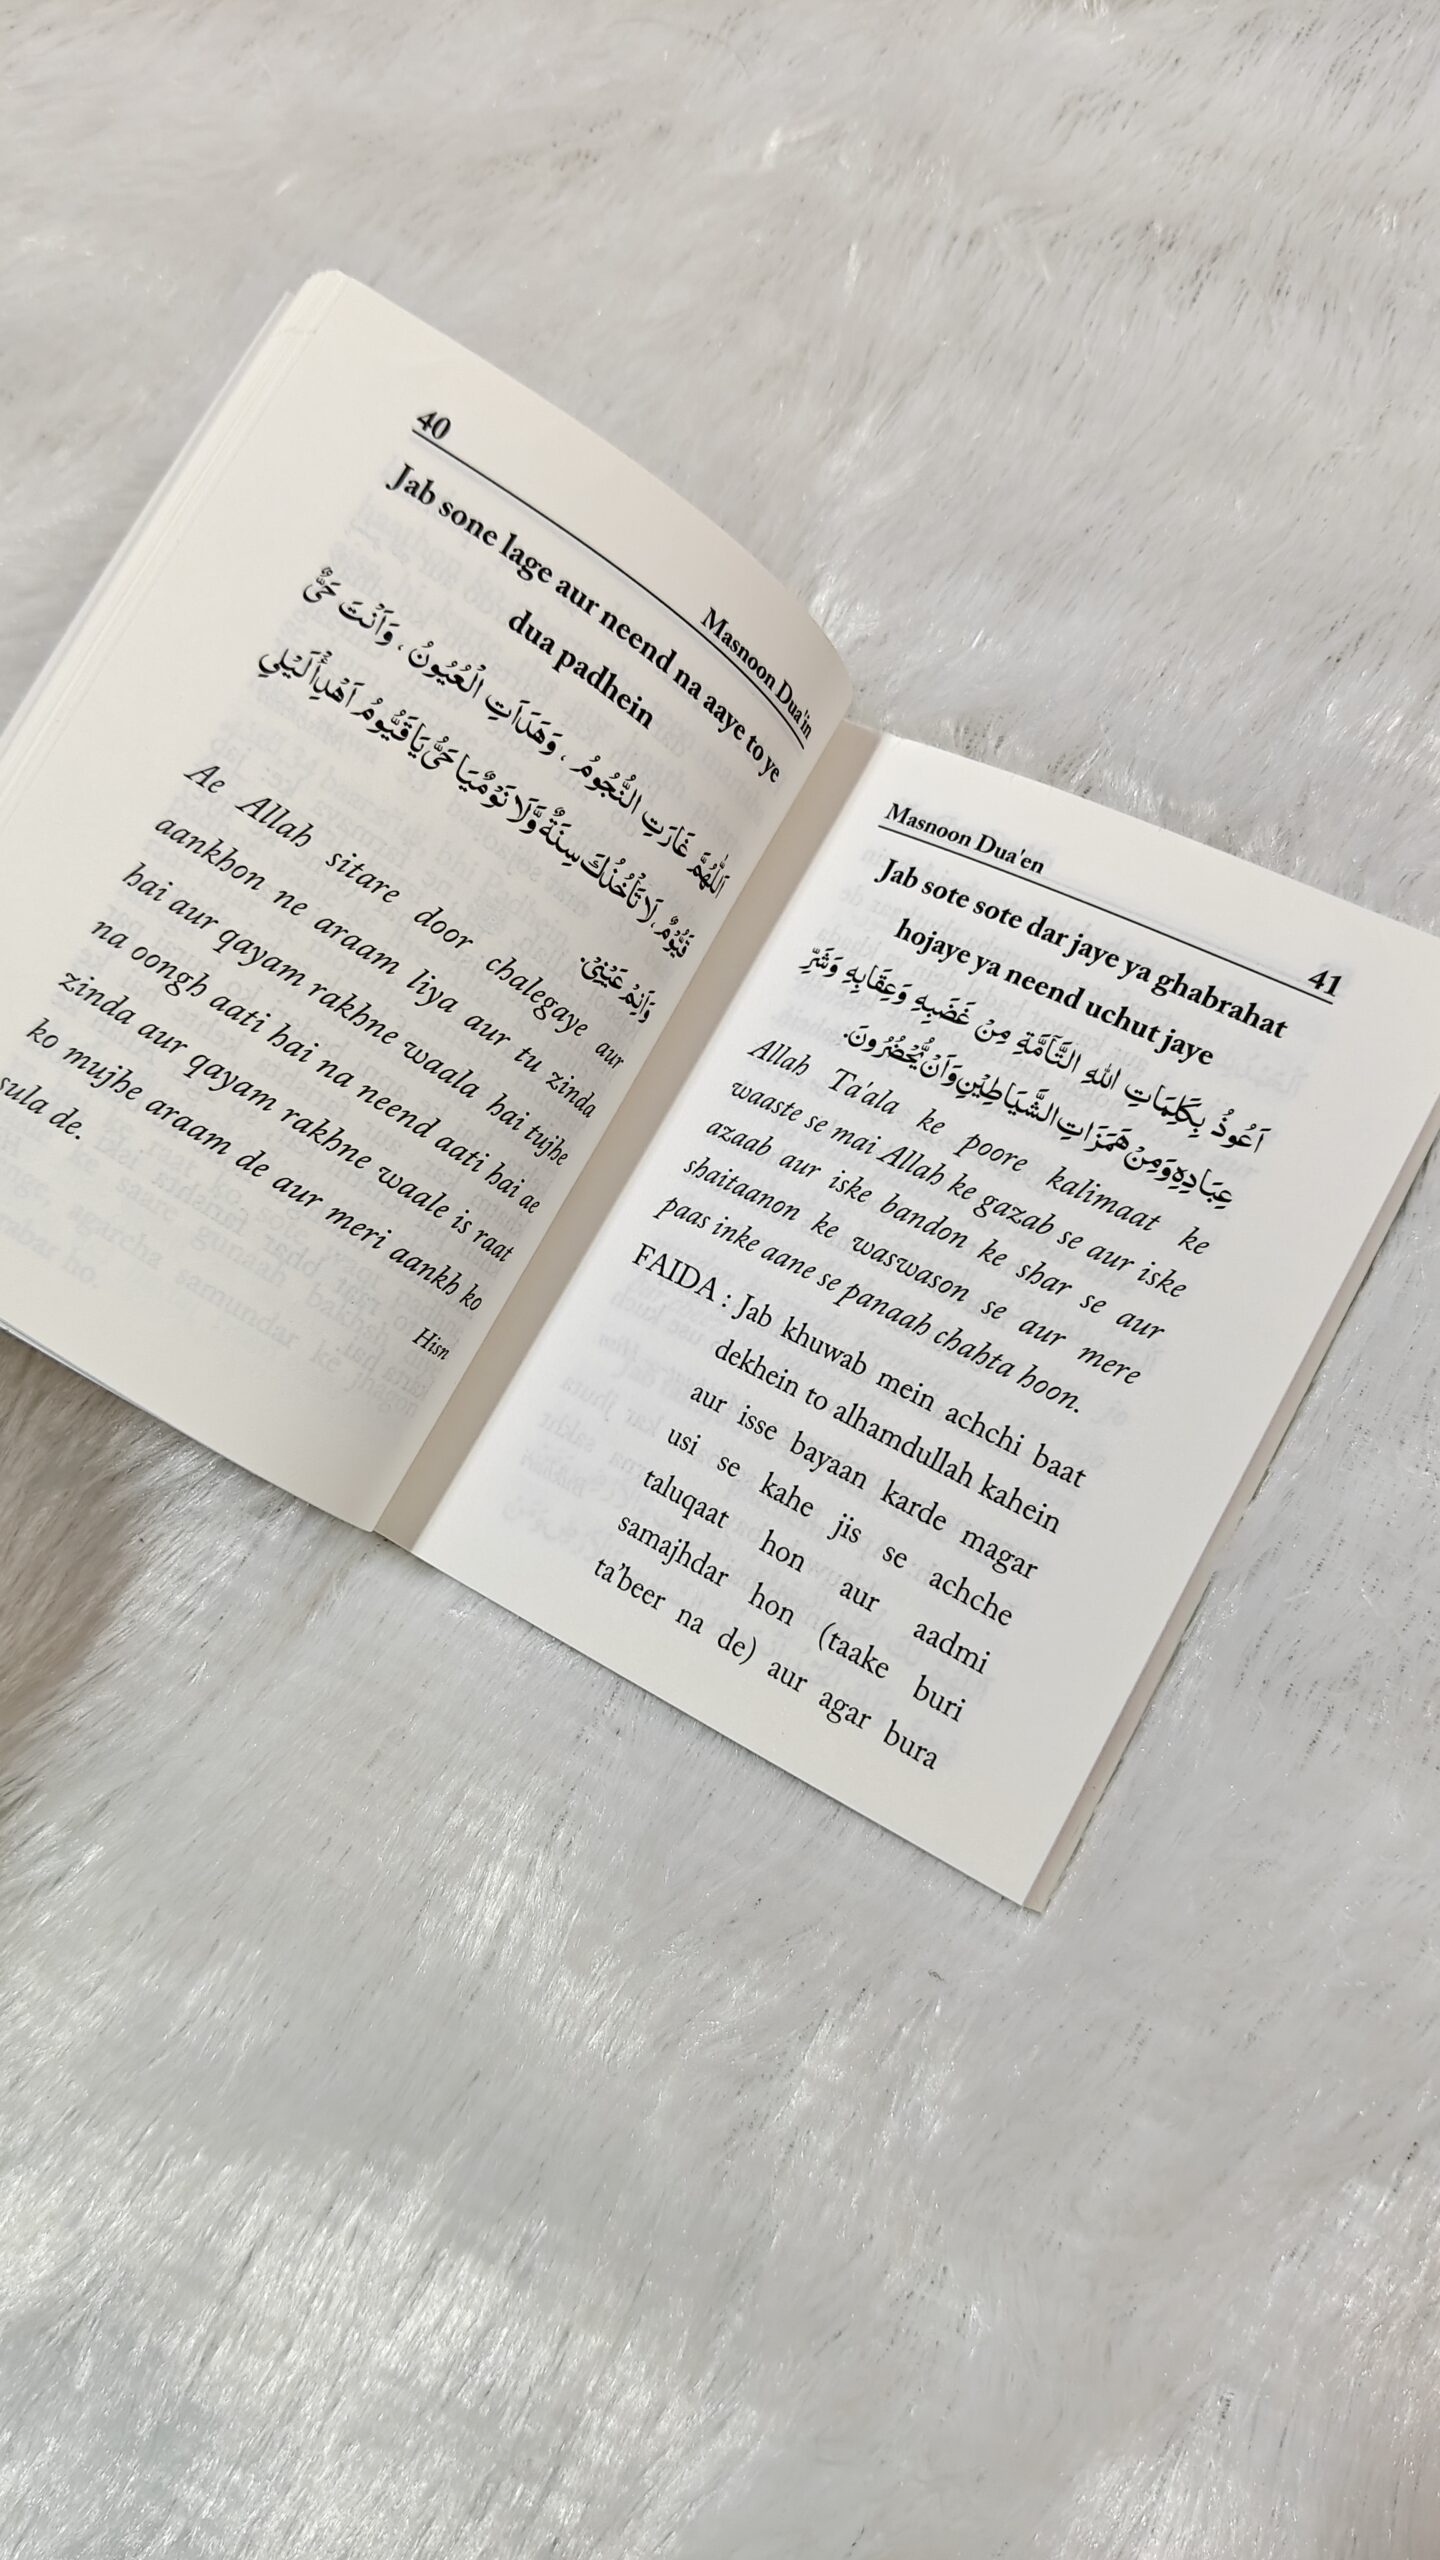 40
Masnoon Dua'in
Jab sone lage aur neend na aaye to ye
dua padhein
اَللّٰهُمَّ غَارَتِ النُّجُوْمُ ، وَهَدَاَتِ الْعُيُوْنُ ، وَاَنْتَ حَيٌّ
قَيُّوْمٌ، لَا تَأْخُذُكَ سِنَةٌ وَّلَا نَوْمٌ يَا حَيُّ يَا قَيُّوْمُ اَهْدِأْ لَيْلِيْ
وَاَنِمْ عَيْنِيْ.
Ae Allah sitare door chalegaye aur
aankhon ne araam liya aur tu zinda
hai aur qayam rakhne waala hai tujhe
na oongh aati hai na neend aati hai ae
zinda aur qayam rakhne waale is raat
ko mujhe araam de aur meri aankh ko
sula de.
Hisn
Masnoon Dua'en
41
Jab sote sote dar jaye ya ghabrahat
hojaye ya neend uchut jaye
اَعُوْذُ بِكَلِمَاتِ اللّٰهِ التَّآمَّةِ مِنْ غَضَبِهٖ وَعِقَابِهٖ وَشَرِّ
عِبَادِهٖ وَمِنْ هَمَزَاتِ الشَّيَاطِيْنِ وَاَنْ يَّحْضُرُوْنَ.
Allah Ta'ala ke poore kalimaat ke
waaste se mai Allah ke gazab se aur iske
azaab aur iske bandon ke shar se aur
shaitaanon ke waswason se aur mere
paas inke aane se panaah chahta hoon.
FAIDA : Jab khuwab mein achchi baat
dekhein to alhamdullah kahein
aur isse bayaan karde magar
usi se kahe jis se achche
taluqaat hon aur aadmi
samajhdar hon (taake buri
ta'beer na de) aur agar bura